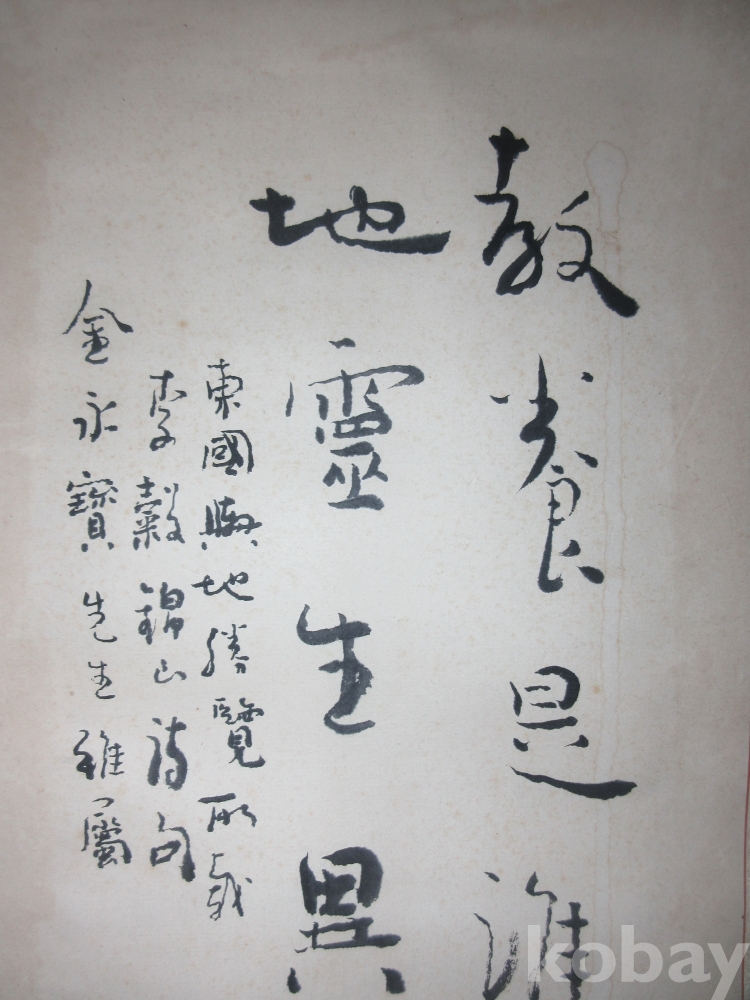 教養是誰
地靈生異
東國輿地勝覽所載
李穀錦山詩句
金永寶先生雅屬
kobay